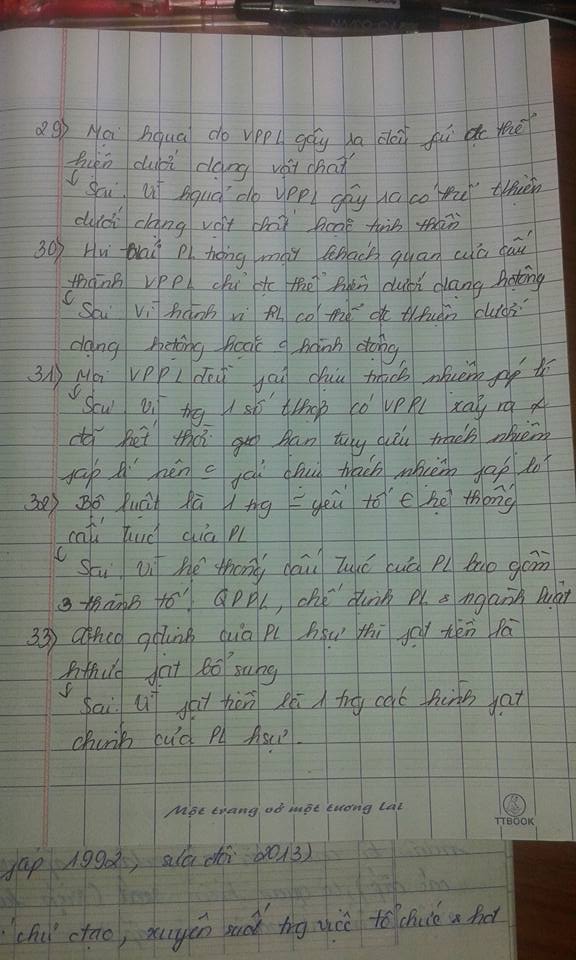 29) Mọi hquả do VPPL gây ra đều fải đc thể
hiện dưới dạng vật chất
Sai. Vì hquả do VPPL gây ra có thể thiện
dưới dạng vật chất hoặc tinh thần
30) Hvi trái PL trong mặt khách quan của cấu
thành VPPL chỉ đc thể hiện dưới dạng hđộng
Sai. Vì hành vi PL có thể đc thiện dưới
dạng hđộng hoặc hành động
31) Mọi VPPL đều fải chịu trách nhiệm fáp lí
Sai. Vì trg 1 số thợp có VPPL xảy ra
đã hết thời hạn truy cứu trách nhiệm
fáp lí nên fải chịu trách nhiệm fáp lí
32) Bộ luật là 1 trg yếu tố hệ thống
cấu trúc của PL
Sai. Vì hệ thống cấu trúc của PL bao gồm
3 thành tố: QPPL, chế định PL & ngành luật
33) Theo qđịnh của PL hsự thì fạt tiền là
hthức fạt bổ sung
Sai. Vì fạt tiền là 1 trg các hình fạt
chính của PL hsự.
Một trang vở một tương lai
TTBOOK
fáp 1992, sửa đổi 2013)
chủ đạo, xuyên suốt trg việc tổ chức & hđ